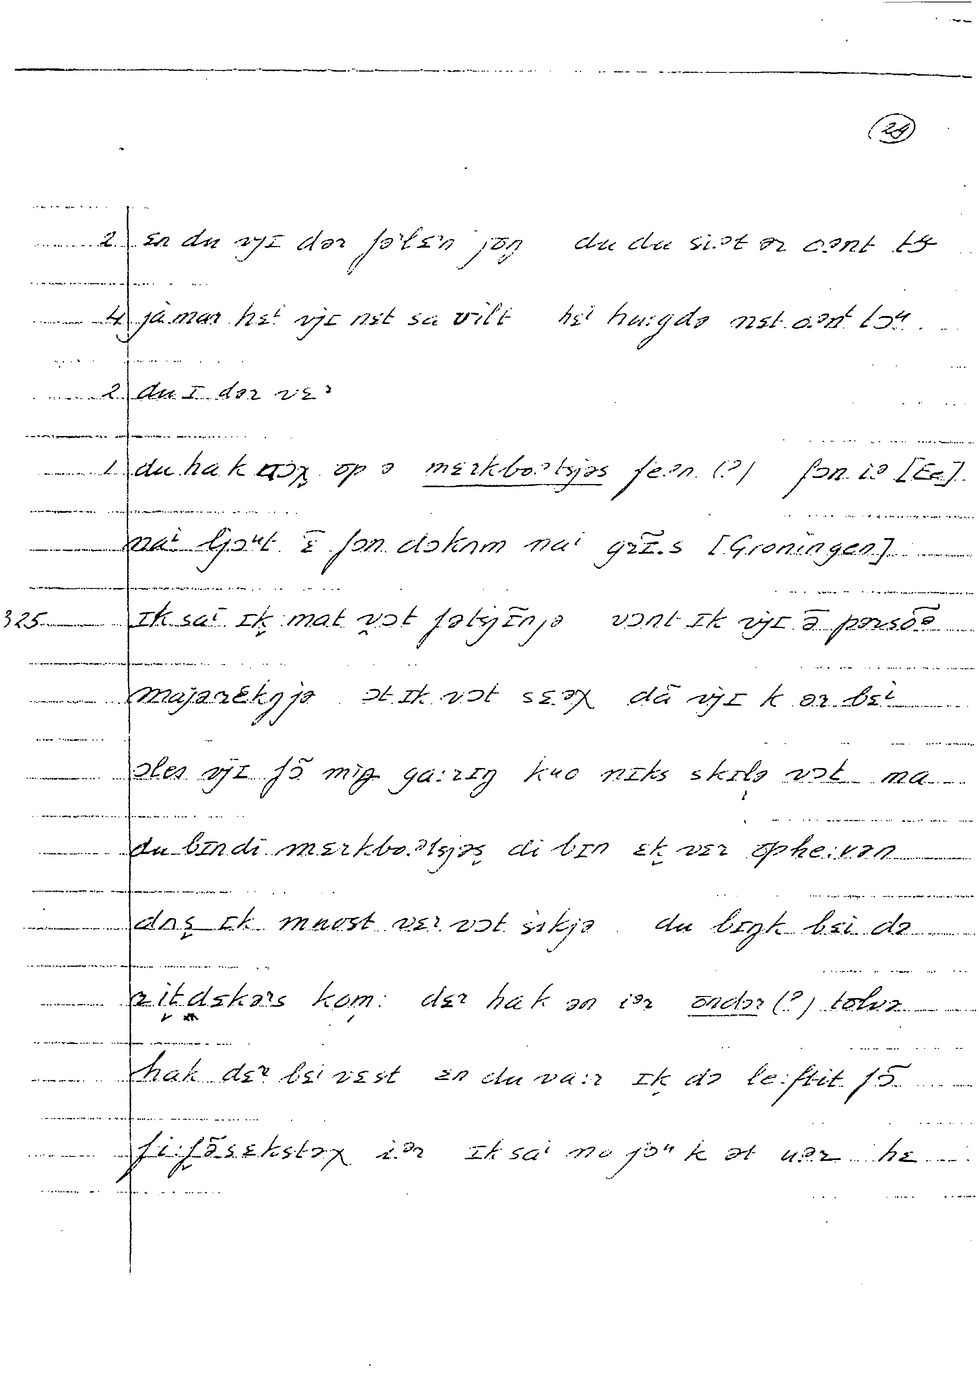 24
2 ɛn du vjɪ dər fəlɛ'n jōŋ du du si.ət ər o.ənt tɔ
4 jà mar hɛⁱ vjɪ nɛt sa vilt hɛⁱ hu:gdə nɛt o.ənt tɔᵘ
2 du ɪ dər vɛ²
1 du hak nɔχ op ə mɛrkbo.ətsjəs fe:n (?) fɔn i.ə [Ee]
naⁱ ljɔᵘt ɛ̄ fɔn dɔkʌm naⁱ grɪ̄.s [Groningen]
325 ɪk saⁱ ɪk mat vɔt fətsjīnjə vɔnt ɪk vjɪ ə̄ pərsō̄ə
majərɛknjə ɔt ɪk vɔt sɛəχ dā vjɪ k ər bɛⁱ
ɔləs vjɪ fɔ̄ mīŋ ga:rɪŋ kuo nɪks skɪlə vɔt ma
du bɪn di mɛrkbo.ətsjəs di bɪn ɛk vɛr ophe:vən
dʌs ɪk muost vɛr vɔt sikjə du bɪŋk bɛi də
ritdɛkərs kom: dɛr hak ən iər ondər (?) tolvə
hak dɛr bɛⁱ vɛst ɛn du va:r ɪk də le:ftit fɔ̄
fi:fə̄sɛkstəχ i.ər ɪk saⁱ no jɔᵘ k ət uər hɛ